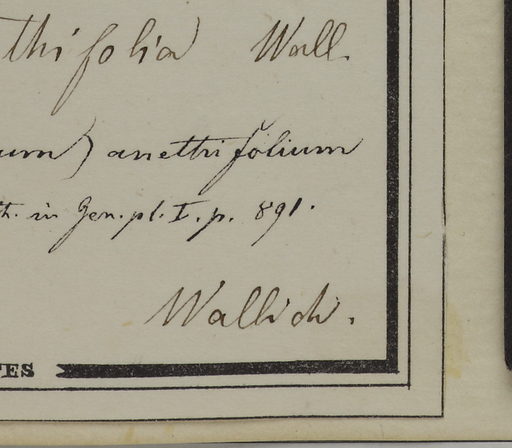 thifolia Wall.
um) anethifolium
th. in Gen. pl. I. p. 891.
Wallich.
TES